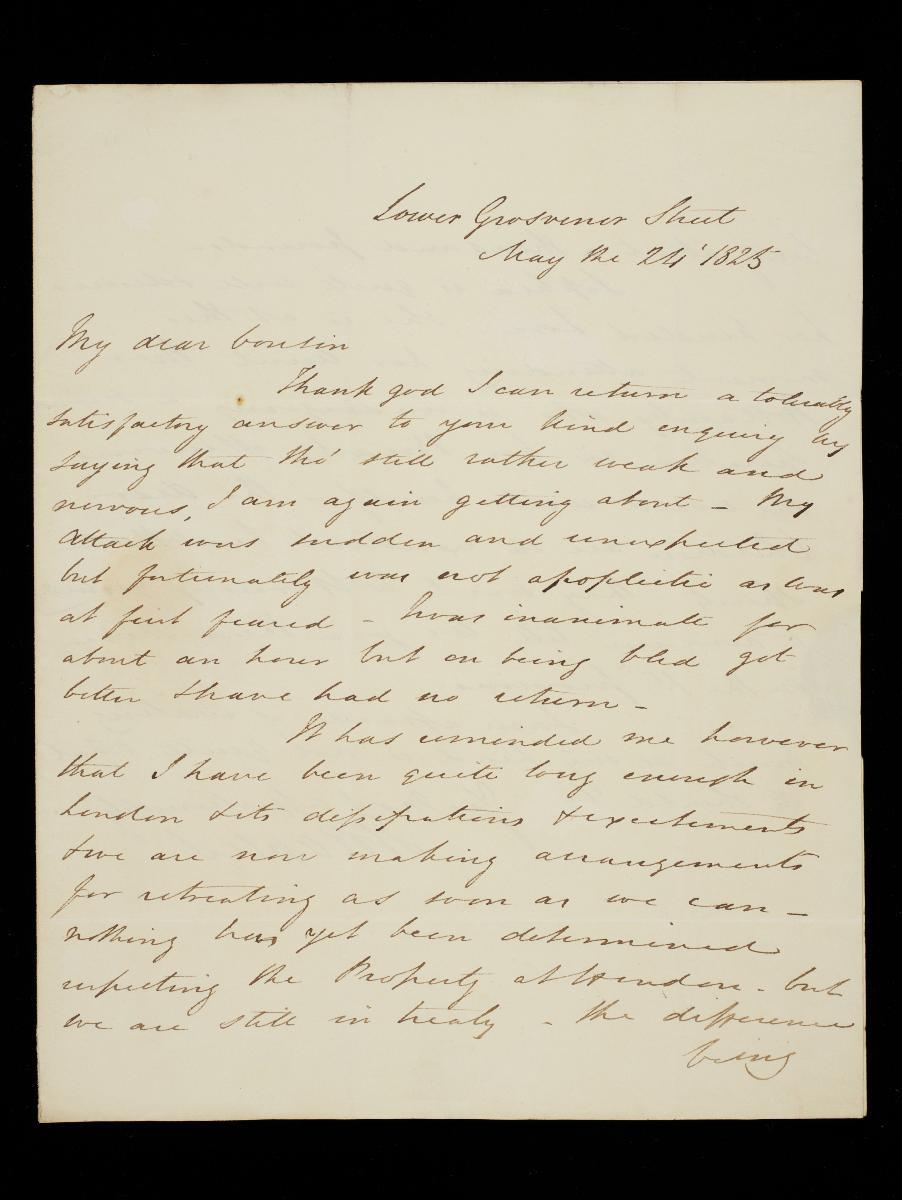 Lower Grosvenor Street
May the 24' 1825
My dear Cousin
Thank god I can return a tolerably
satisfactory answer to your kind enquiry by
saying that tho' still rather weak and
nervous, I am again getting about - My
attack was sudden and unexpected
but fortunately was not apoplectic as was
at first feared - I was inanimate for
about an hour but on being bled got
better & have had no return -
It has reminded me however
that I have been quite long enough in
London & its dissipations & excitements
& we are now making arrangements
for retreating as soon as we can -
nothing has yet been determined
respecting the Property at Hendon - but
we are still in treaty - the difference
being